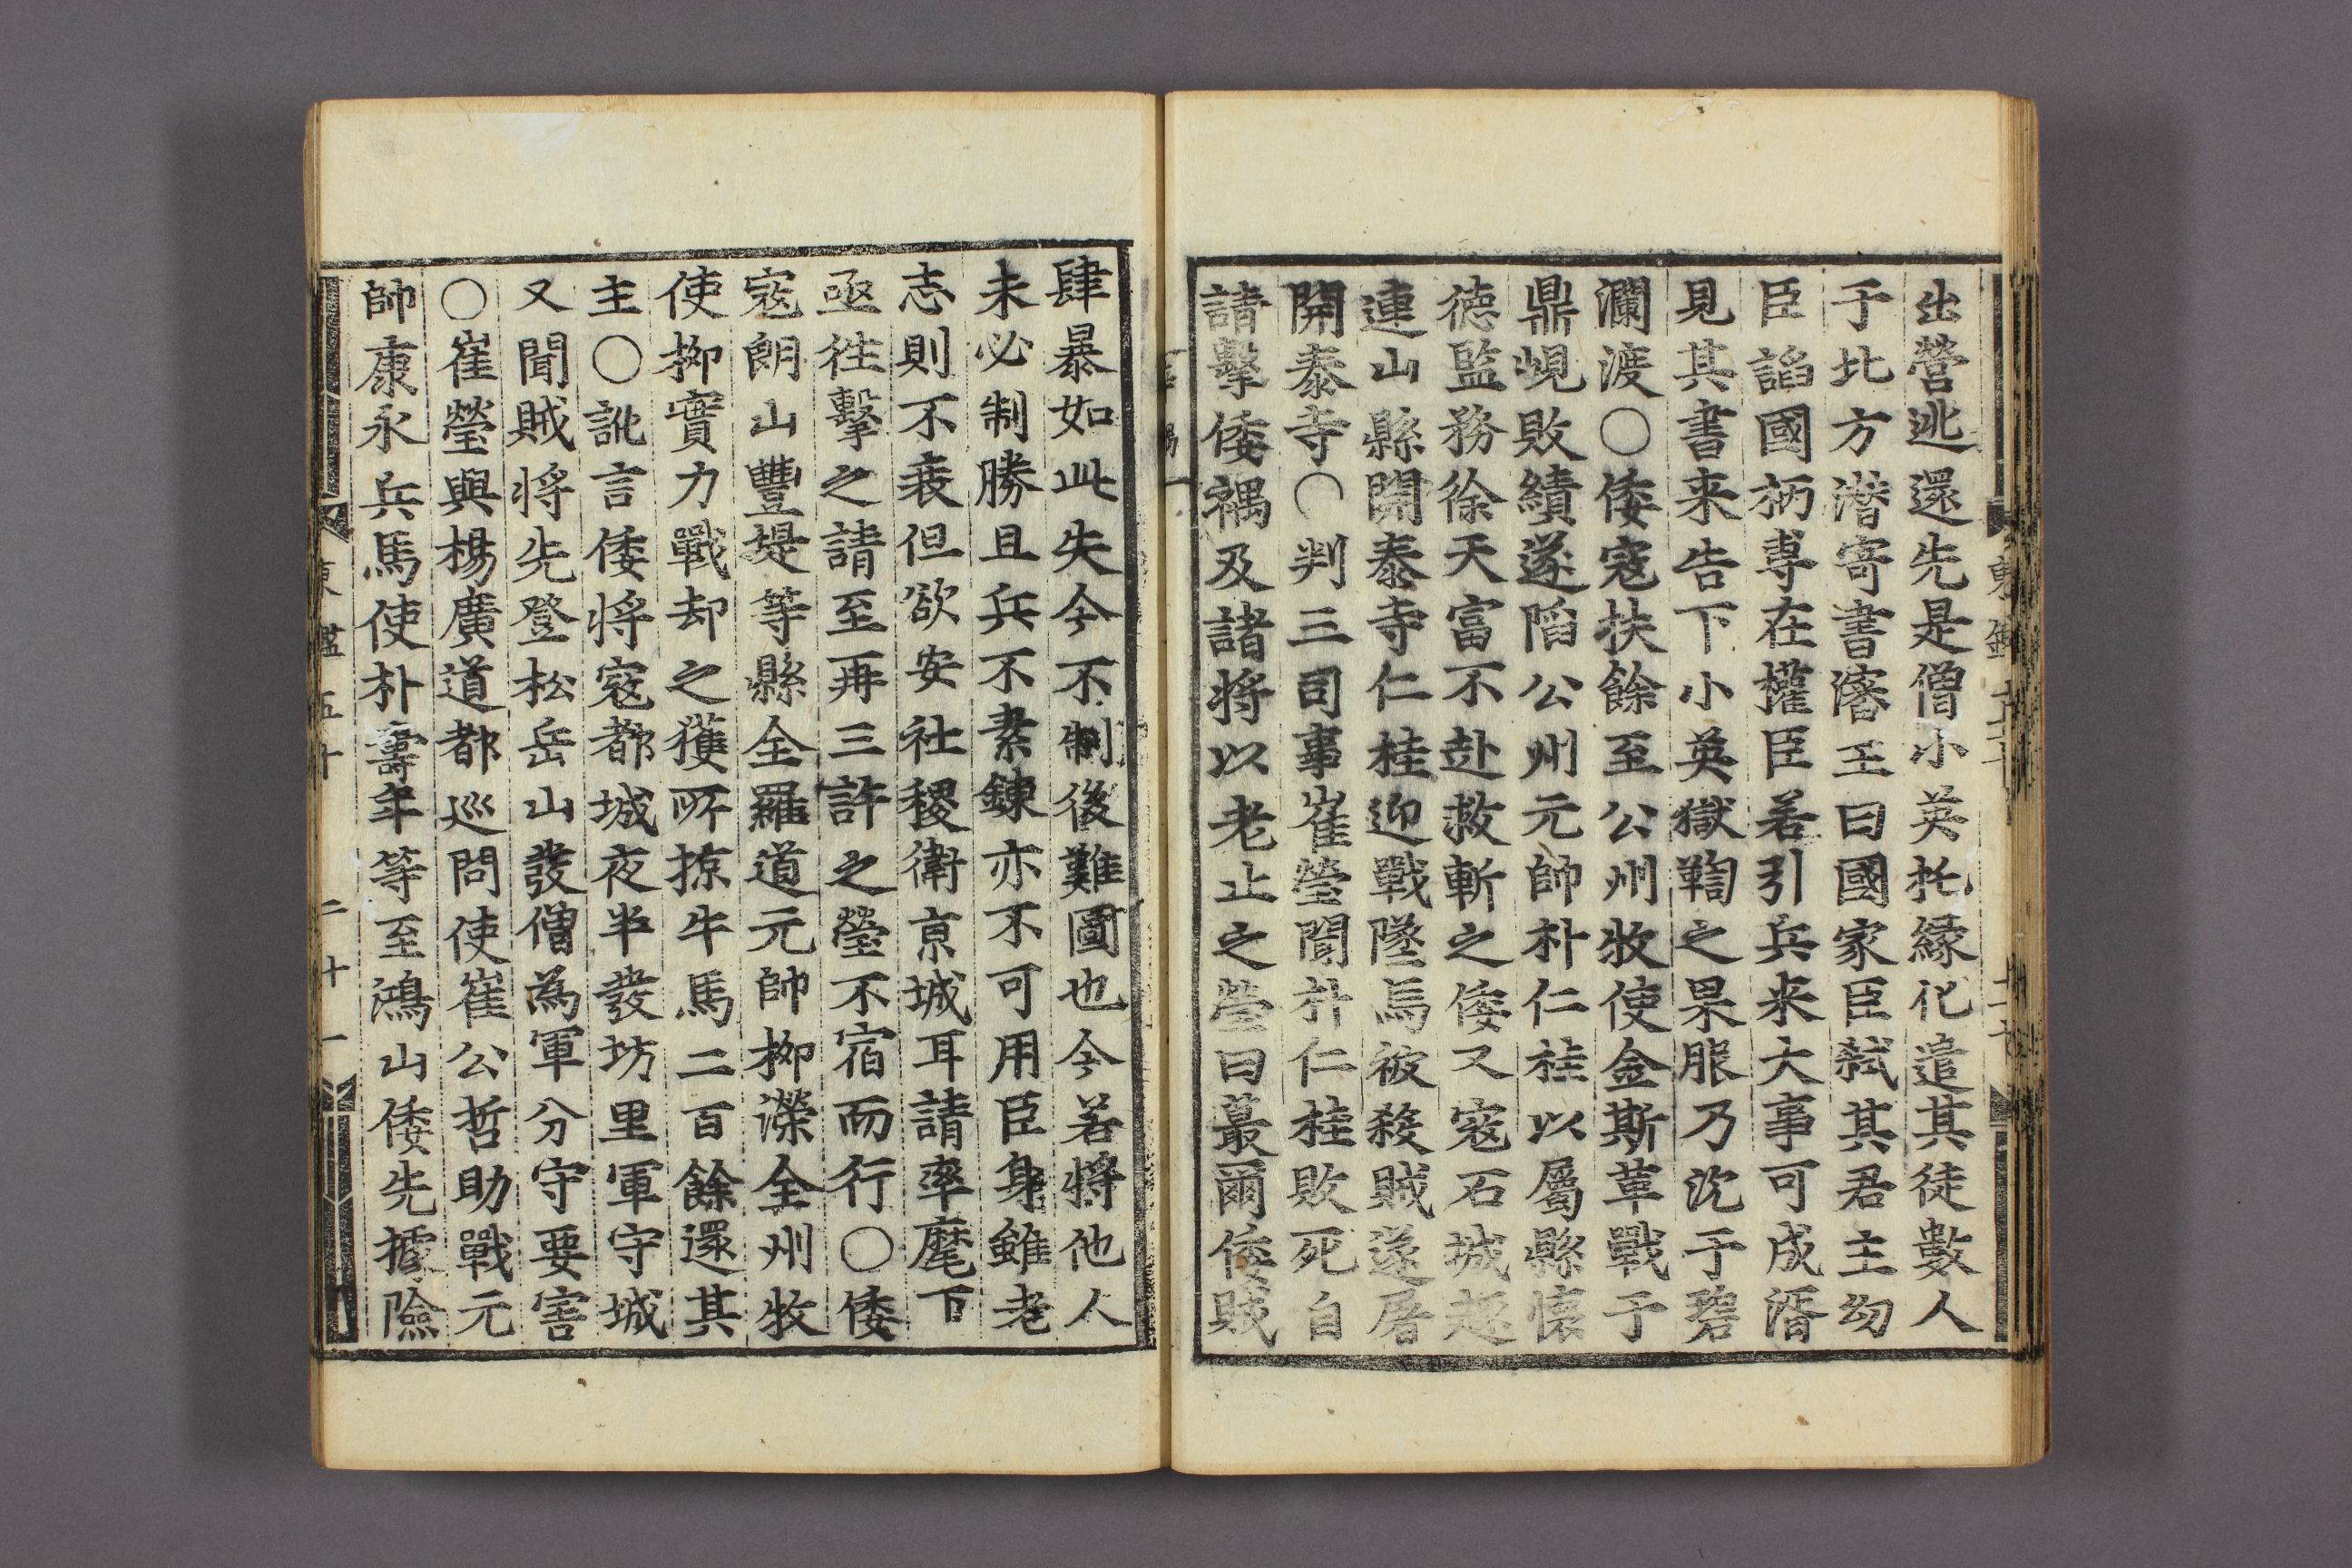 出營逃還先是僧小英托緣化遣其徒數人
于北方潛寄書瀋王曰國家臣弑其君主幼
臣謟國柄專在權臣若引兵来大事可成湑
見其書来告下小英獄鞫之果服乃沈于碧
瀾渡○倭寇扶餘至公州牧使金斯革戰于
鼎峴敗績遂陷公州元帥朴仁桂以屬縣懷
德監務徐天富不赴救斬之倭又寇石城趣
連山縣開泰寺仁桂迎戰墜馬被殺賊遂屠
開泰寺○判三司事崔瑩聞朴仁桂敗死自
請擊倭禑及諸將以老止之瑩曰蕞爾倭賊
肆暴如此失今不制後難圖也今若將他人
未必制勝且兵不素鍊亦不可用臣身雖老
志則不衰但欲安社稷衛京城耳請率麾下
亟往擊之請至再三許之瑩不宿而行○倭
寇朗山豐堤等縣全羅道元帥柳濚全州牧
使柳實力戰却之獲所掠牛馬二百餘還其
主○訛言倭將寇都城夜半發坊里軍守城
又聞賊將先登松岳山發僧為軍分守要害
○崔瑩與楊廣道都巡問使崔公哲助戰元
帥康永兵馬使朴壽年等至鴻山倭先據險
東鑑五十 二十一